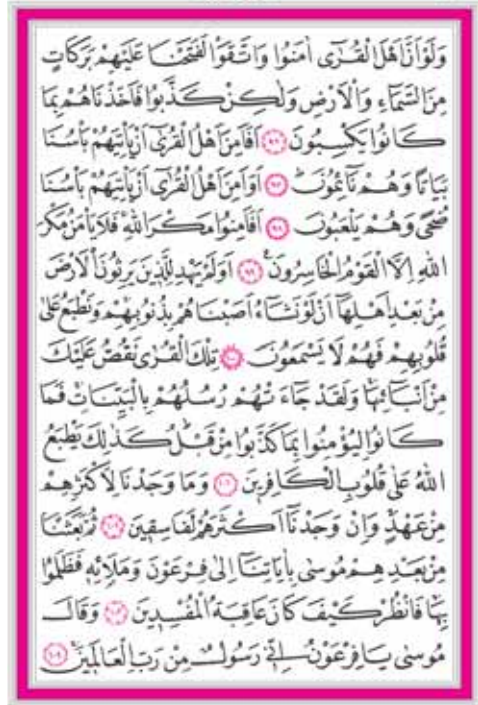 وَلَوْ اَنَّ اَهْلَ الْقُرٰٓى اٰمَنُوا وَاتَّقَوْا لَفَتَحْنَا عَلَيْهِمْ بَرَكَاتٍ
مِنَ السَّمَٓاءِ وَالْاَرْضِ وَلٰكِنْ كَذَّبُوا فَاَخَذْنَاهُمْ بِمَا
كَانُوا يَكْسِبُونَ ﴿٩٦﴾ اَفَاَمِنَ اَهْلُ الْقُرٰٓى اَنْ يَأْتِيَهُمْ بَأْسُنَا
بَيَاتًا وَهُمْ نَٓائِمُونَ ﴿٩٧﴾ اَوَاَمِنَ اَهْلُ الْقُرٰٓى اَنْ يَأْتِيَهُمْ بَأْسُنَا
ضُحًى وَهُمْ يَلْعَبُونَ ﴿٩٨﴾ اَفَاَمِنُوا مَكْرَ اللّٰهِ فَلَا يَأْمَنُ مَكْرَ
اللّٰهِ اِلَّا الْقَوْمُ الْخَاسِرُونَ ﴿٩٩﴾ اَوَلَمْ يَهْدِ لِلَّذِينَ يَرِثُونَ الْاَرْضَ
مِنْ بَعْدِ اَهْلِهَٓا اَنْ لَوْ نَشَٓاءُ اَصَبْنَاهُمْ بِذُنُوبِهِمْ وَنَطْبَعُ عَلٰى
قُلُوبِهِمْ فَهُمْ لَا يَسْمَعُونَ ﴿١٠٠﴾ تِلْكَ الْقُرٰى نَقُصُّ عَلَيْكَ
مِنْ اَنْبَٓائِهَا وَلَقَدْ جَٓاءَتْهُمْ رُسُلُهُمْ بِالْبَيِّنَاتِ فَمَا
كَانُوا لِيُؤْمِنُوا بِمَا كَذَّبُوا مِنْ قَبْلُ كَذٰلِكَ يَطْبَعُ
اللّٰهُ عَلٰى قُلُوبِ الْكَافِرِينَ ﴿١٠١﴾ وَمَا وَجَدْنَا لِاَكْثَرِهِمْ
مِنْ عَهْدٍ وَاِنْ وَجَدْنَٓا اَكْثَرَهُمْ لَفَاسِقِينَ ﴿١٠٢﴾ ثُمَّ بَعَثْنَا
مِنْ بَعْدِهِمْ مُوسٰى بِاٰيَاتِنَٓا اِلٰى فِرْعَوْنَ وَمَلَا۬ئِهِ فَظَلَمُوا
بِهَا فَانْظُرْ كَيْفَ كَانَ عَاقِبَةُ الْمُفْسِدِينَ ﴿١٠٣﴾ وَقَالَ
مُوسٰى يَا فِرْعَوْنُ اِنِّي رَسُولٌ مِنْ رَبِّ الْعَالَمِينَ ﴿١٠٤﴾